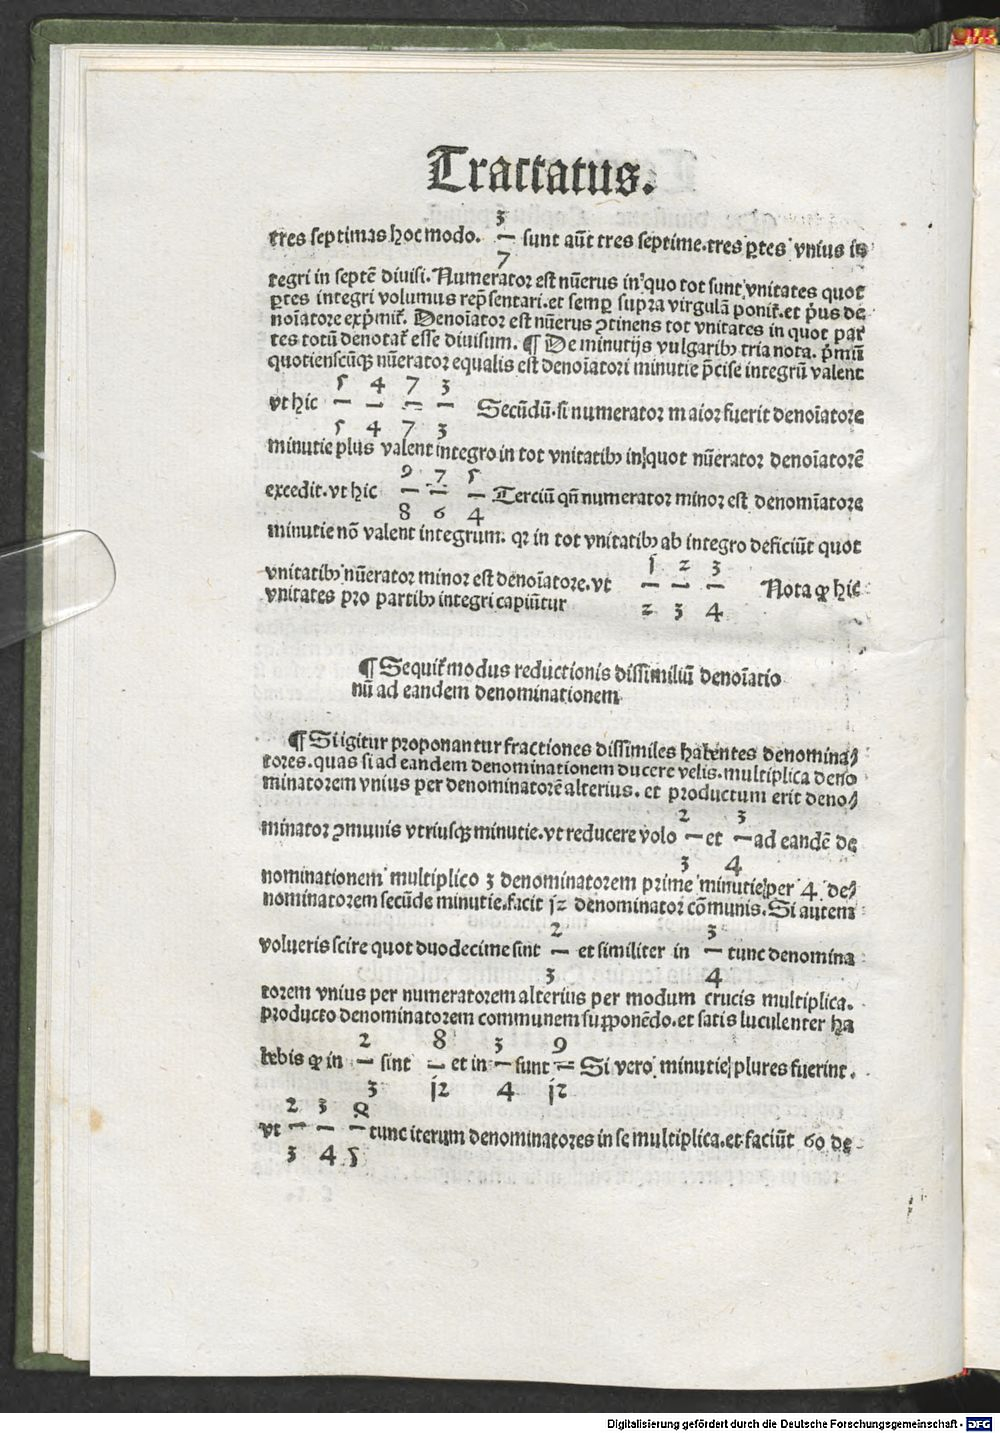 Tractatus.
tres septimas hoc modo. 3/7 sunt aūt tres septime. tres ꝑtes vnius in
tegri in septē diuisi. Numerator est nūerus in quo tot sunt vnitates quot
ꝑtes integri volumus rep̄sentari. et semꝑ supra virgulā ponit᷑. et p̄us de
noīatore exp̄mit᷑. Denoīator est nūerus ꝯtinens tot vnitates in quot par
tes totū denotat᷑ esse diuisum. ¶ De minutijs vulgaribꝫ tria nota. p̄mū
quotienscūqꝫ nūerator equalis est denoīatori minutie p̄cise integrū valent
vt hic 5/5 4/4 7/7 3/3 Secūdū. si numerator maior fuerit denoīatore
minutie plus valent integro in tot vnitatibꝫ in quot nūerator denoīatorē
excedit. vt hic 9/8 7/6 5/4 Terciū qn̄ numerator minor est denomīatore
minutie nō valent integrum. qꝛ in tot vnitatibꝫ ab integro deficiūt quot
vnitatibꝫ nūerator minor est denoīatore. vt 1/2 2/3 3/4 Nota ꝙ hic
vnitates pro partibꝫ integri capiūtur
¶ Sequit᷑ modus reductionis dissimiliū denoīatio
nū ad eandem denominationem
¶ Si igitur proponantur fractiones dissimiles habentes denomina⸗
tores. quas si ad eandem denominationem ducere velis. multiplica deno
minatorem vnius per denominatorē alterius. et productum erit deno⸗
minator ꝯmunis vtriusqꝫ minutie. vt reducere volo 2/3 et 3/4 ad eandē de
nominationem multiplico 3 denominatorem prime minutie per 4 de⸗
nominatorem secūde minutie. facit 12 denominator cōmunis. Si autem
volueris scire quot duodecime sint 2/3 et similiter in 3/4 tunc denomina
torem vnius per numeratorem alterius per modum crucis multiplica.
producto denominatorem communem supponēdo. et satis luculenter ha
bebis ꝙ in 2/3 sint 8/12 et in 3/4 sunt 9/12 Si vero minutie plures fuerint.
vt 2/3 3/4 /5 tunc iterum denominatores in se multiplica. et faciūt 60 de
Digitalisierung gefördert durch die Deutsche Forschungsgemeinschaft - DFG